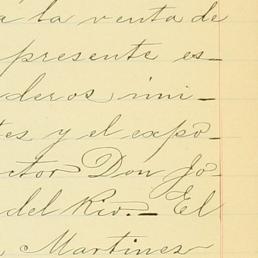 á la venta de
presente es-
deros úni-
tes y el expo-
ctor Don Jo-
del Rio.- El
Martinez